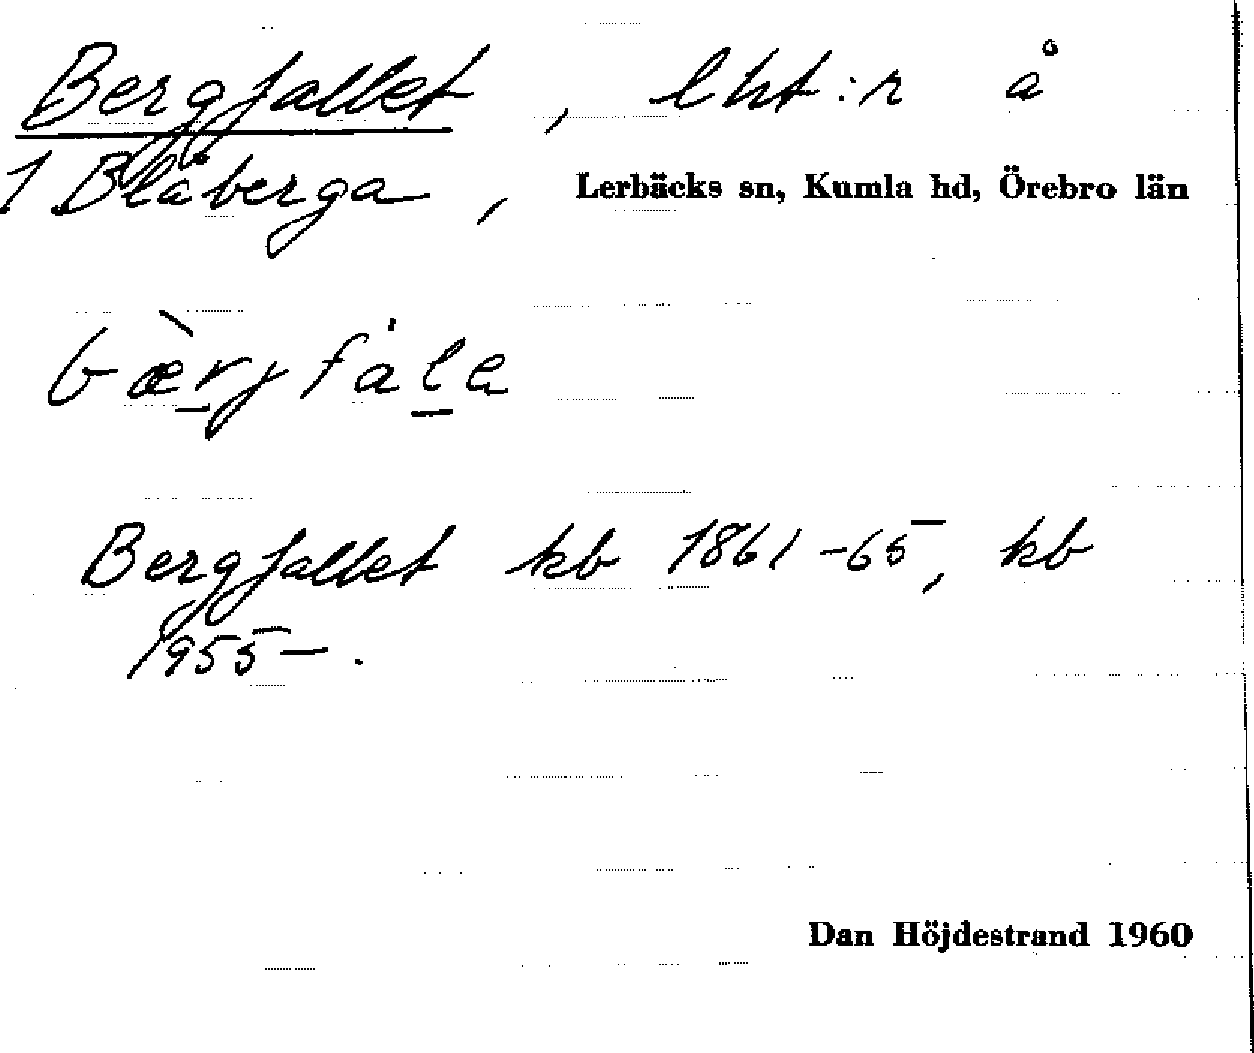 Bergfallet, lht:r å
1 Blåberga, Lerbäcks sn, Kumla hd, Örebro län
bæ̀rjfála
Bergfallet kb 1861-65, kb
1955-.
Dan Höjdestrand 1960